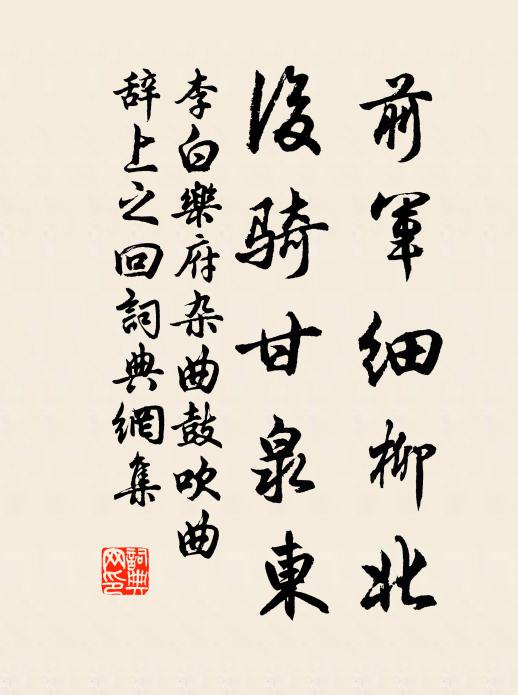 前軍細柳北
後騎甘泉東
李白樂府杂曲鼓吹曲
辞上之回詞典網集
詞典
网印